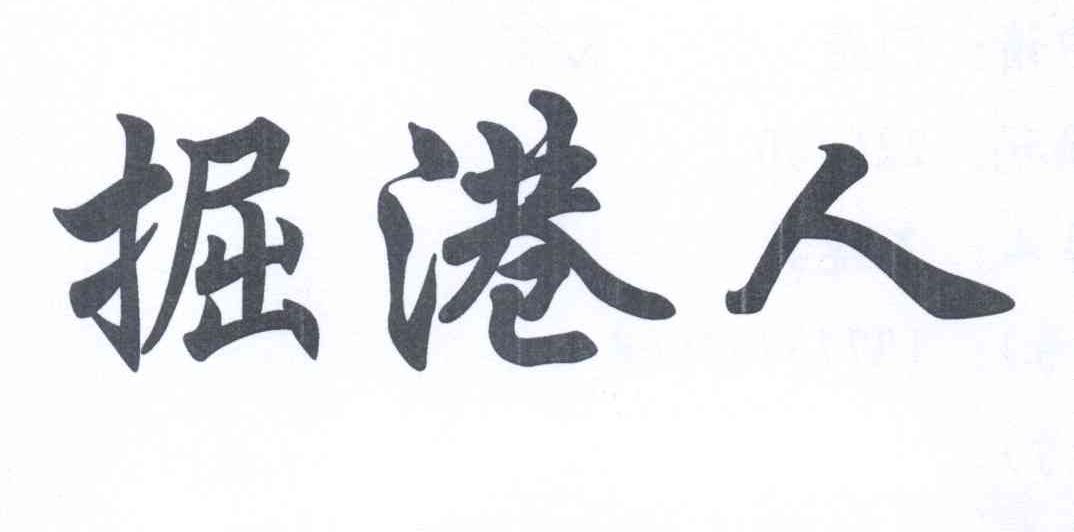 掘港人